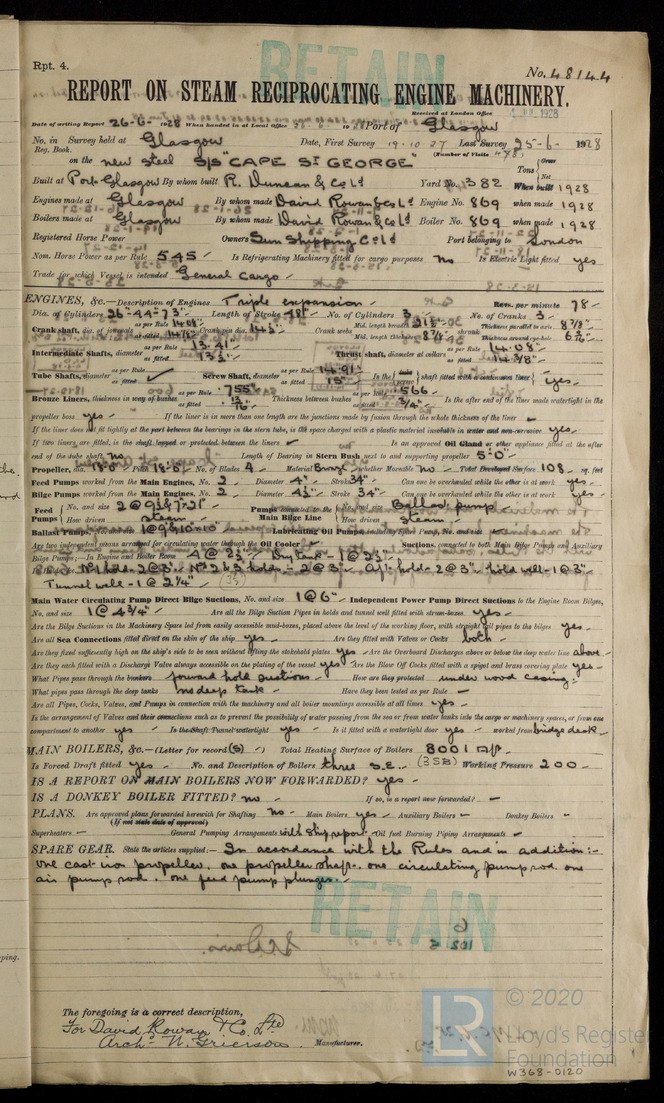 RETAIN
Rpt. 4.
No. 48144
REPORT ON STEAM RECIPROCATING ENGINE MACHINERY.
Received at London Office
Date of writing Report 26-6-1928 When handed in at Local Office 19 Port of Glasgow
No. in Reg. Book. Survey held at Glasgow Date, First Survey 19.10.27 Last Survey 25-6-1928
(Number of Visits
on the new steel S/S "CAPE ST GEORGE" Tons { Gross Net
Built at Port-Glasgow By whom built R. Duncan & Co Ld Yard No. 382 When built 1928
Engines made at Glasgow By whom made David Rowan & Co Ld Engine No. 869 when made 1928
Boilers made at Glasgow By whom made David Rowan & Co Ld Boiler No. 869 when made 1928
Registered Horse Power Owners Sun Shipping Co Ld Port belonging to London
Nom. Horse Power as per Rule 545 Is Refrigerating Machinery fitted for cargo purposes no Is Electric Light fitted yes
Trade for which Vessel is intended General Cargo
ENGINES, &c.—Description of Engines Triple expansion Revs. per minute 78
Dia. of Cylinders 26"-44"-73" Length of Stroke 48" No. of Cylinders 3 No. of Cranks 3
Crank shaft, dia. of journals as per Rule 14.08" as fitted Crank pin dia. 14½" Crank webs Mid. length breadth Mid. length thickness 8⅞" Thickness parallel to axis 8⅞" Thickness around eye-hole
Intermediate Shafts, diameter as per Rule 13.41" as fitted 13½" Thrust shaft, diameter at collars as per Rule 14.08" as fitted 14⅜"
Tube Shafts, diameter as per Rule as fitted Screw Shaft, diameter as per Rule 14.91" as fitted 15" Is the { tube screw } shaft fitted with a continuous liner { yes
Bronze Liners, thickness in way of bushes as per Rule .755" as fitted Thickness between bushes as per Rule .566 as fitted ¾" Is the after end of the liner made watertight in the
propeller boss yes If the liner is in more than one length are the junctions made by fusion through the whole thickness of the liner
If the liner does not fit tightly at the part between the bearings in the stern tube, is the space charged with a plastic material insoluble in water and non-corrosive yes
If two liners are fitted, is the shaft lapped or protected between the liners Is an approved Oil Gland or other appliance fitted at the after
end of the tube shaft no Length of Bearing in Stern Bush next to and supporting propeller 5'-0"
Propeller, dia. 18'-0" Pitch No. of Blades 4 Material Bronze whether Moveable no Total Developed Surface 108 sq. feet
Feed Pumps worked from the Main Engines, No. 2 Diameter 4" Stroke 34" Can one be overhauled while the other is at work yes
Bilge Pumps worked from the Main Engines, No. 2 Diameter 4½" Stroke 34" Can one be overhauled while the other is at work yes
Feed Pumps { No. and size How driven steam Pumps connected to the Main Bilge Line { No. and size Ballast pump How driven Steam
Ballast Pumps, No. and size Lubricating Oil Pumps, including Spare Pump, No. and size
Are two independent means arranged for circulating water through the Oil Cooler Suctions, connected to both Main Bilge Pumps and Auxiliary
Bilge Pumps;—In Engine and Boiler Room 4 @ 3½" Dry tank - 1 @ 3½"
In Holds, &c. No 1 hold - 2 @ 3" Nos 2 & 3 holds - 2 @ 3" Aft hold - 2 @ 3" hold well - 1 @ 3"
Tunnel well - 1 @ 2¼"
Main Water Circulating Pump Direct Bilge Suctions, No. and size 1 @ 6" Independent Power Pump Direct Suctions to the Engine Room Bilges,
No. and size 1 @ 4¾" Are all the Bilge Suction Pipes in holds and tunnel well fitted with strum-boxes yes
Are the Bilge Suctions in the Machinery Space led from easily accessible mud-boxes, placed above the level of the working floor, with straight tail pipes to the bilges yes
Are all Sea Connections fitted direct on the skin of the ship yes Are they fitted with Valves or Cocks both
Are they fixed sufficiently high on the ship's side to be seen without lifting the stokehold plates yes Are the Overboard Discharges above or below the deep water line above
Are they each fitted with a Discharge Valve always accessible on the plating of the vessel yes Are the Blow Off Cocks fitted with a spigot and brass covering plate yes
What Pipes pass through the bunkers forward hold suctions How are they protected under wood casing
What pipes pass through the deep tanks no deep tank Have they been tested as per Rule
Are all Pipes, Cocks, Valves, and Pumps in connection with the machinery and all boiler mountings accessible at all times yes
Is the arrangement of Valves and their connections such as to prevent the possibility of water passing from the sea or from water tanks into the cargo or machinery spaces, or from one
compartment to another yes Is the Shaft Tunnel watertight yes Is it fitted with a watertight door yes worked from bridge deck
MAIN BOILERS, &c.—(Letter for record (S) ) Total Heating Surface of Boilers 8001
Is Forced Draft fitted yes No. and Description of Boilers three S.E. (3SB) Working Pressure 200
IS A REPORT ON MAIN BOILERS NOW FORWARDED? yes
IS A DONKEY BOILER FITTED? no If so, is a report now forwarded?
PLANS. Are approved plans forwarded herewith for Shafting no Main Boilers yes Auxiliary Boilers Donkey Boilers
(If not state date of approval)
Superheaters General Pumping Arrangements with Ship report Oil fuel Burning Piping Arrangements
SPARE GEAR. State the articles supplied:— In accordance with the Rules and in addition:-
one cast iron propeller, one propeller shaft, one circulating pump rod one
air pump rod, one feed pump plunger.
RETAIN
The foregoing is a correct description,
For David Rowan & Co. Ltd
Archd. W. Grierson Manufacturer.
LR
© 2020
Lloyd's Register
Foundation
W368-0120